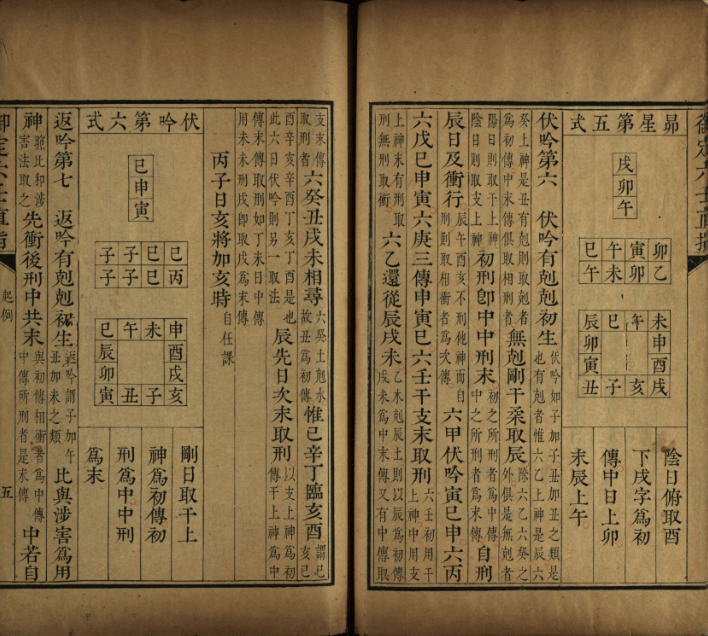 昴星第五式
戌
卯
午
卯寅午巳
乙卯未午
未午巳辰
申卯
酉寅
戌亥子丑
陰日俯取酉
下戌字為初
傳中日上卯
末辰上午
伏吟第六　伏吟有剋剋初生伏吟如子加子丑加丑之類是也有剋者惟六乙上神是辰六
癸上神是丑有剋則取剋者為初傳中末傳俱取相刑者無剋剛干柔取辰除六乙六癸之外俱是無剋者
陽日則取干上神陰日則取支上神初刑卽中中刑末初之所刑者為中傳中之所刑者為末傳自刑
辰日及衝行辰午酉亥不刑他神而自刑則取相衝者為次傳六甲伏吟寅巳申六丙
六戊巳申寅六庚三傳申寅巳六壬干支末取刑六壬初用干上神中用支
上神末有刑取刑無刑取衝六乙還從辰戌未乙木剋辰土則以辰為初傳戌未為中末傳又有中傳取
支末傳取刑者六癸丑戌未相尋六癸土剋水故丑為初傳惟巳辛丁臨亥酉謂己亥己
酉辛亥辛酉丁亥丁酉是也此六日伏吟則另一取法辰先日次末取刑以支上神為初傳干上神為中
傳末傳取刑如丁未日中傳用未未刑戌卽取戌為末傳
丙子日亥將加亥時自任課
伏吟第六式
巳
申
寅
巳巳子子
丙巳子子
申未午巳
酉辰
戌卯
亥子丑寅
剛日取干上
神為初傳初
刑為中中刑
為末
返吟第七　返吟有剋剋初生返吟謂子加午丑加未之類比與涉害為用
神賊比和涉害法取之先衝後刑中共末與初傳相衝者為中傳中傳所刑者是末傳中若自
御定六壬直指
起例
五